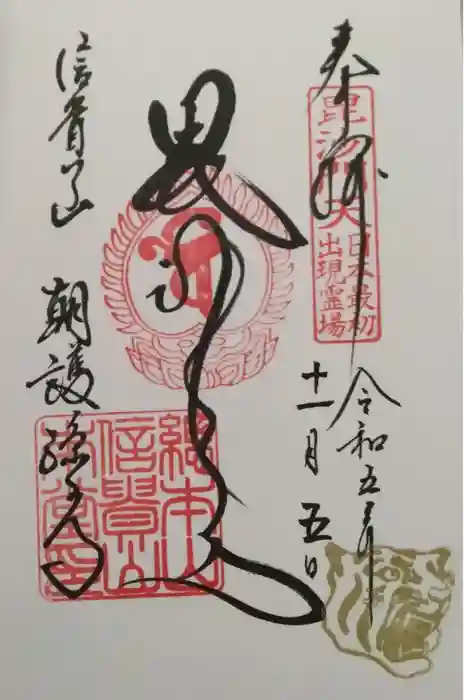 奉拝
毘沙門天
日本最初
出現霊場
令和五年
十一月五日
毘沙門天
信貴山
朝護孫子寺
総本山
信貴山